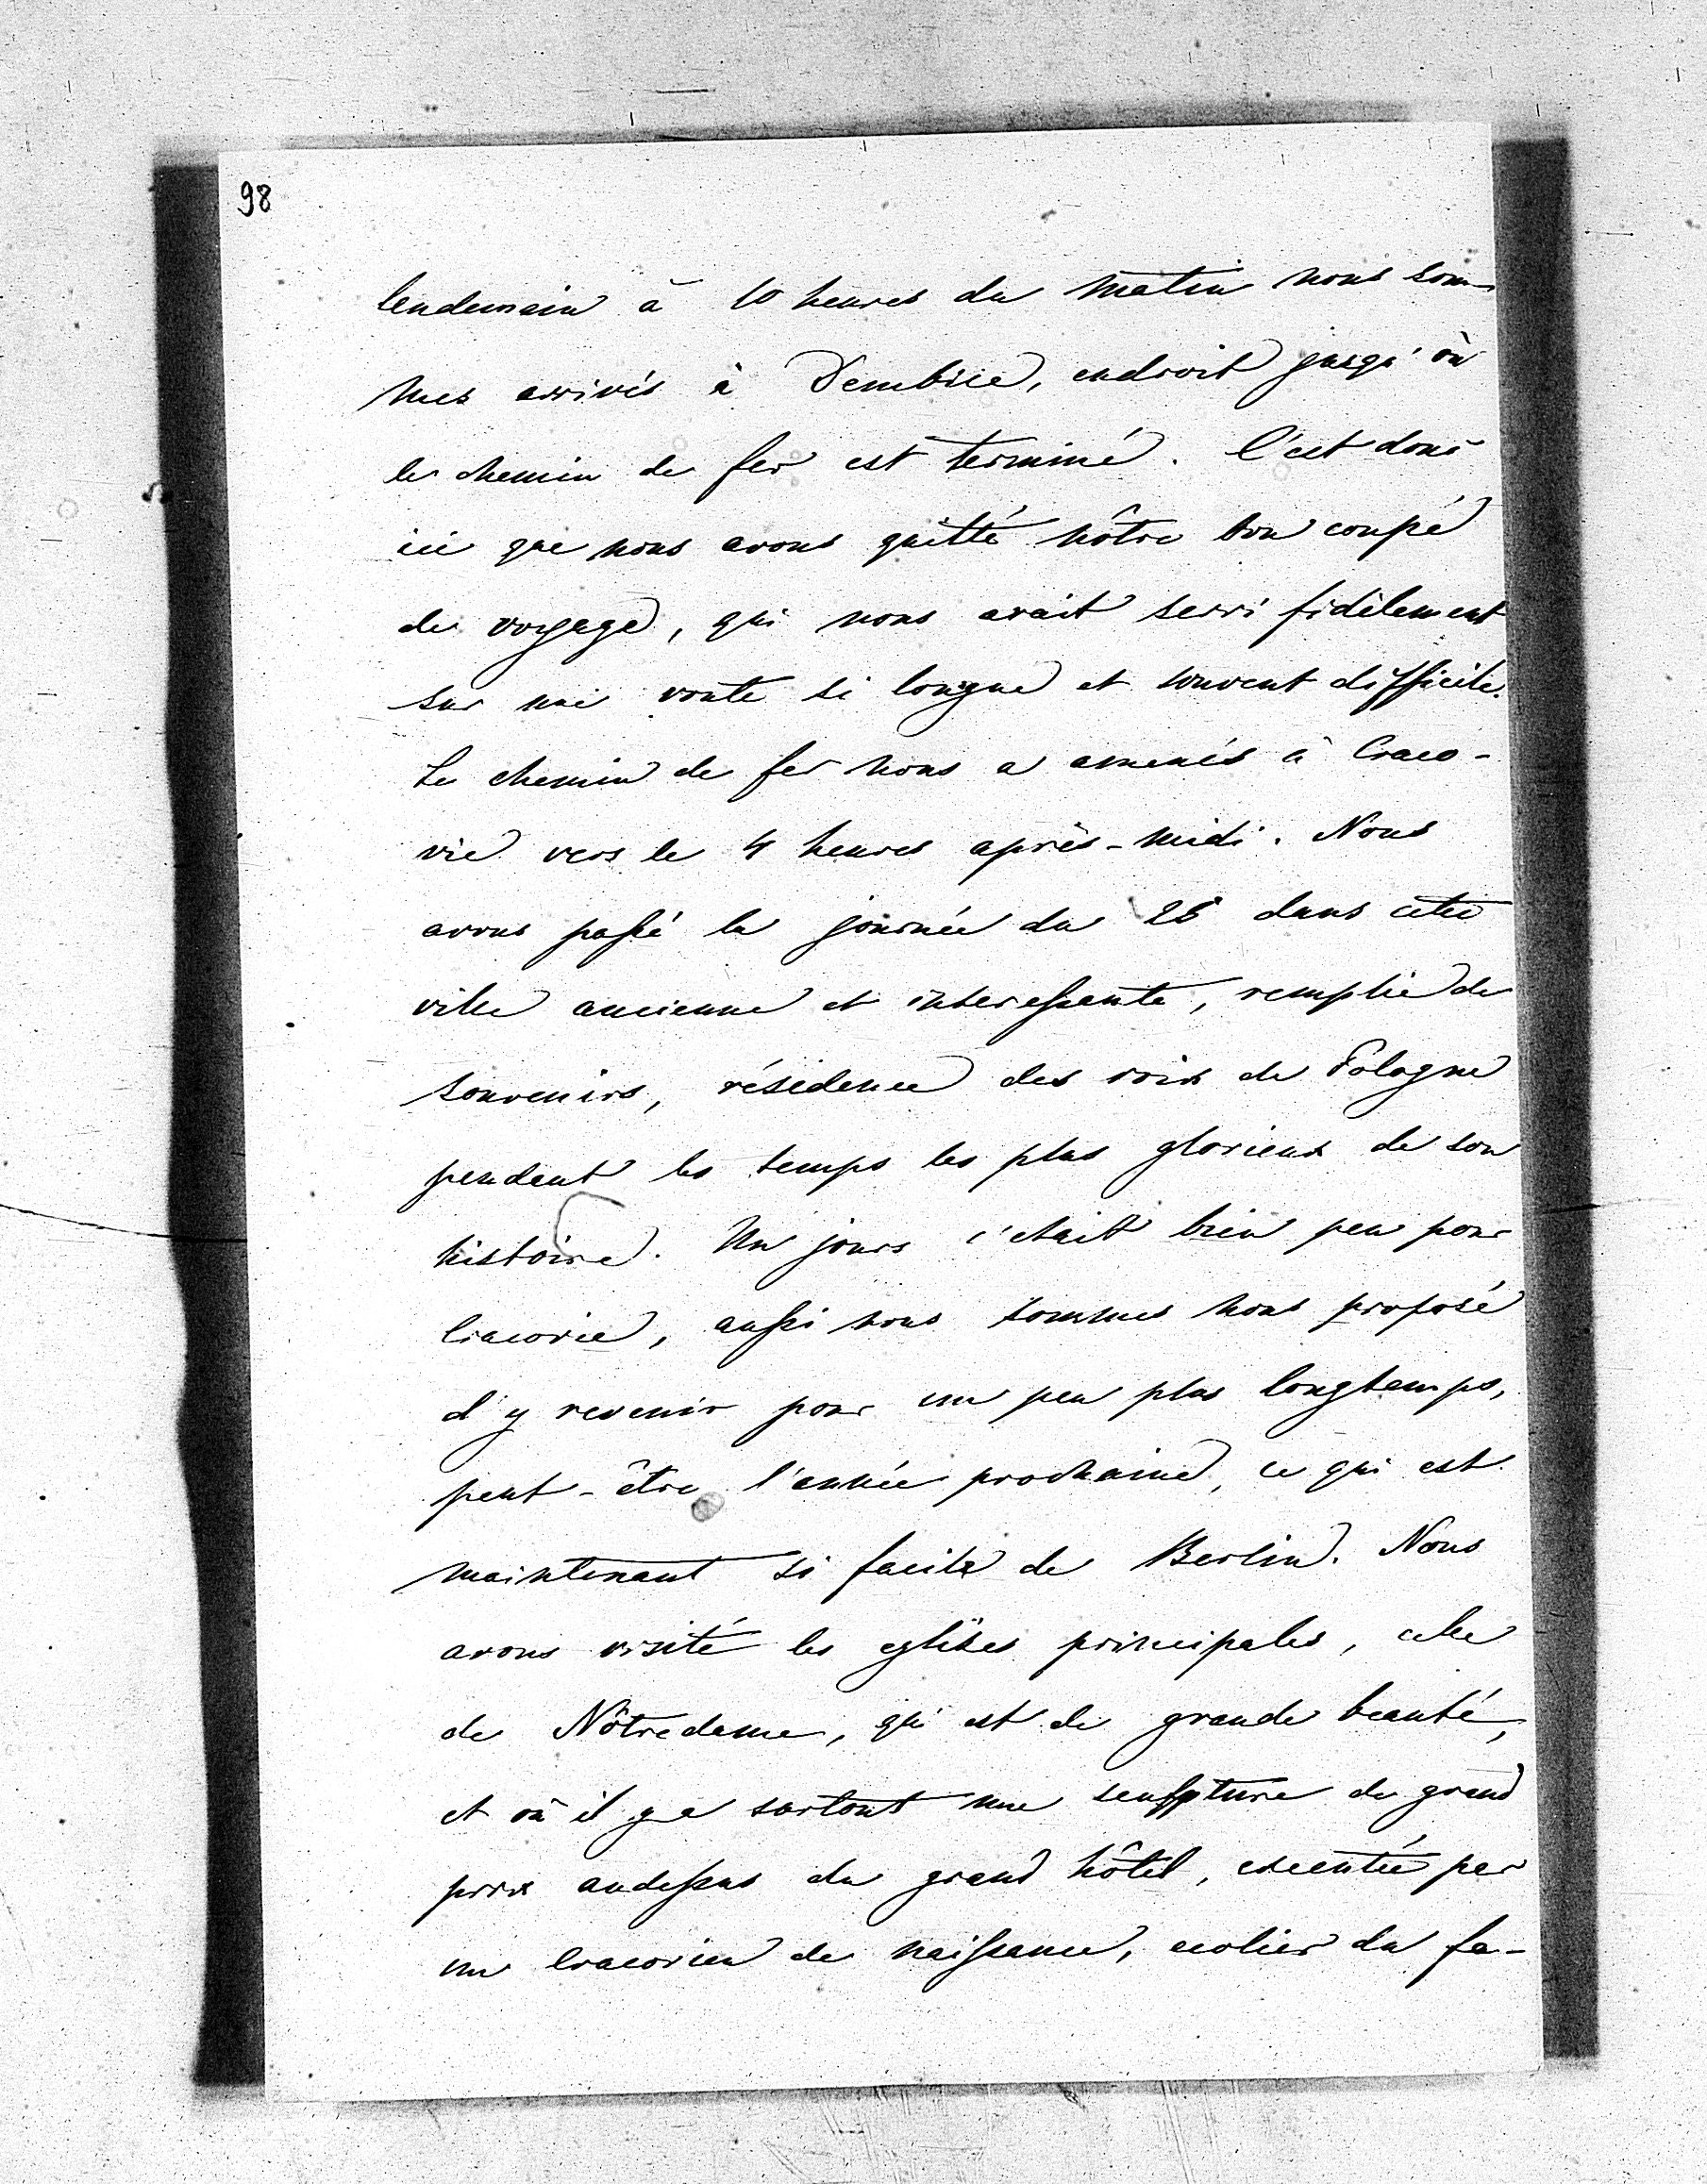 98
lendemain à 10 heures du matin nous som-
mes arrivés à Dembice, endroit jusqu'où
le chemin de fer est terminé. C'est donc
ici que nous avons quitté nôtre bon coupé
de voyage, qui nous avait servi fidèlement
sur une route si longue et souvent difficile.
Le chemin de fer nous a amenés à Craco-
vie vers le 4 heures après-midi. Nous
avons passé la journée du 26 dans cette
ville ancienne et interessante, remplie de
souvenirs, résidence des rois de Pologne
pendant les temps les plus glorieux de son
histoire. Un jours c'etait bien peu pour
Cracovie, aussi nous sommes nous proposé
d'y revenir pour un peu plus longtemps,
peut-être l'année prochaine, ce qui est
maintenant si facile de Berlin. Nous
avons visité les eglises principales, celle
de Nôtredame, qui est de grande beauté,
et où il y a surtout une sculpture du grand
prix audessus du grand hôtel, executée par
un Cracovien de naissance, ecolier du fa-